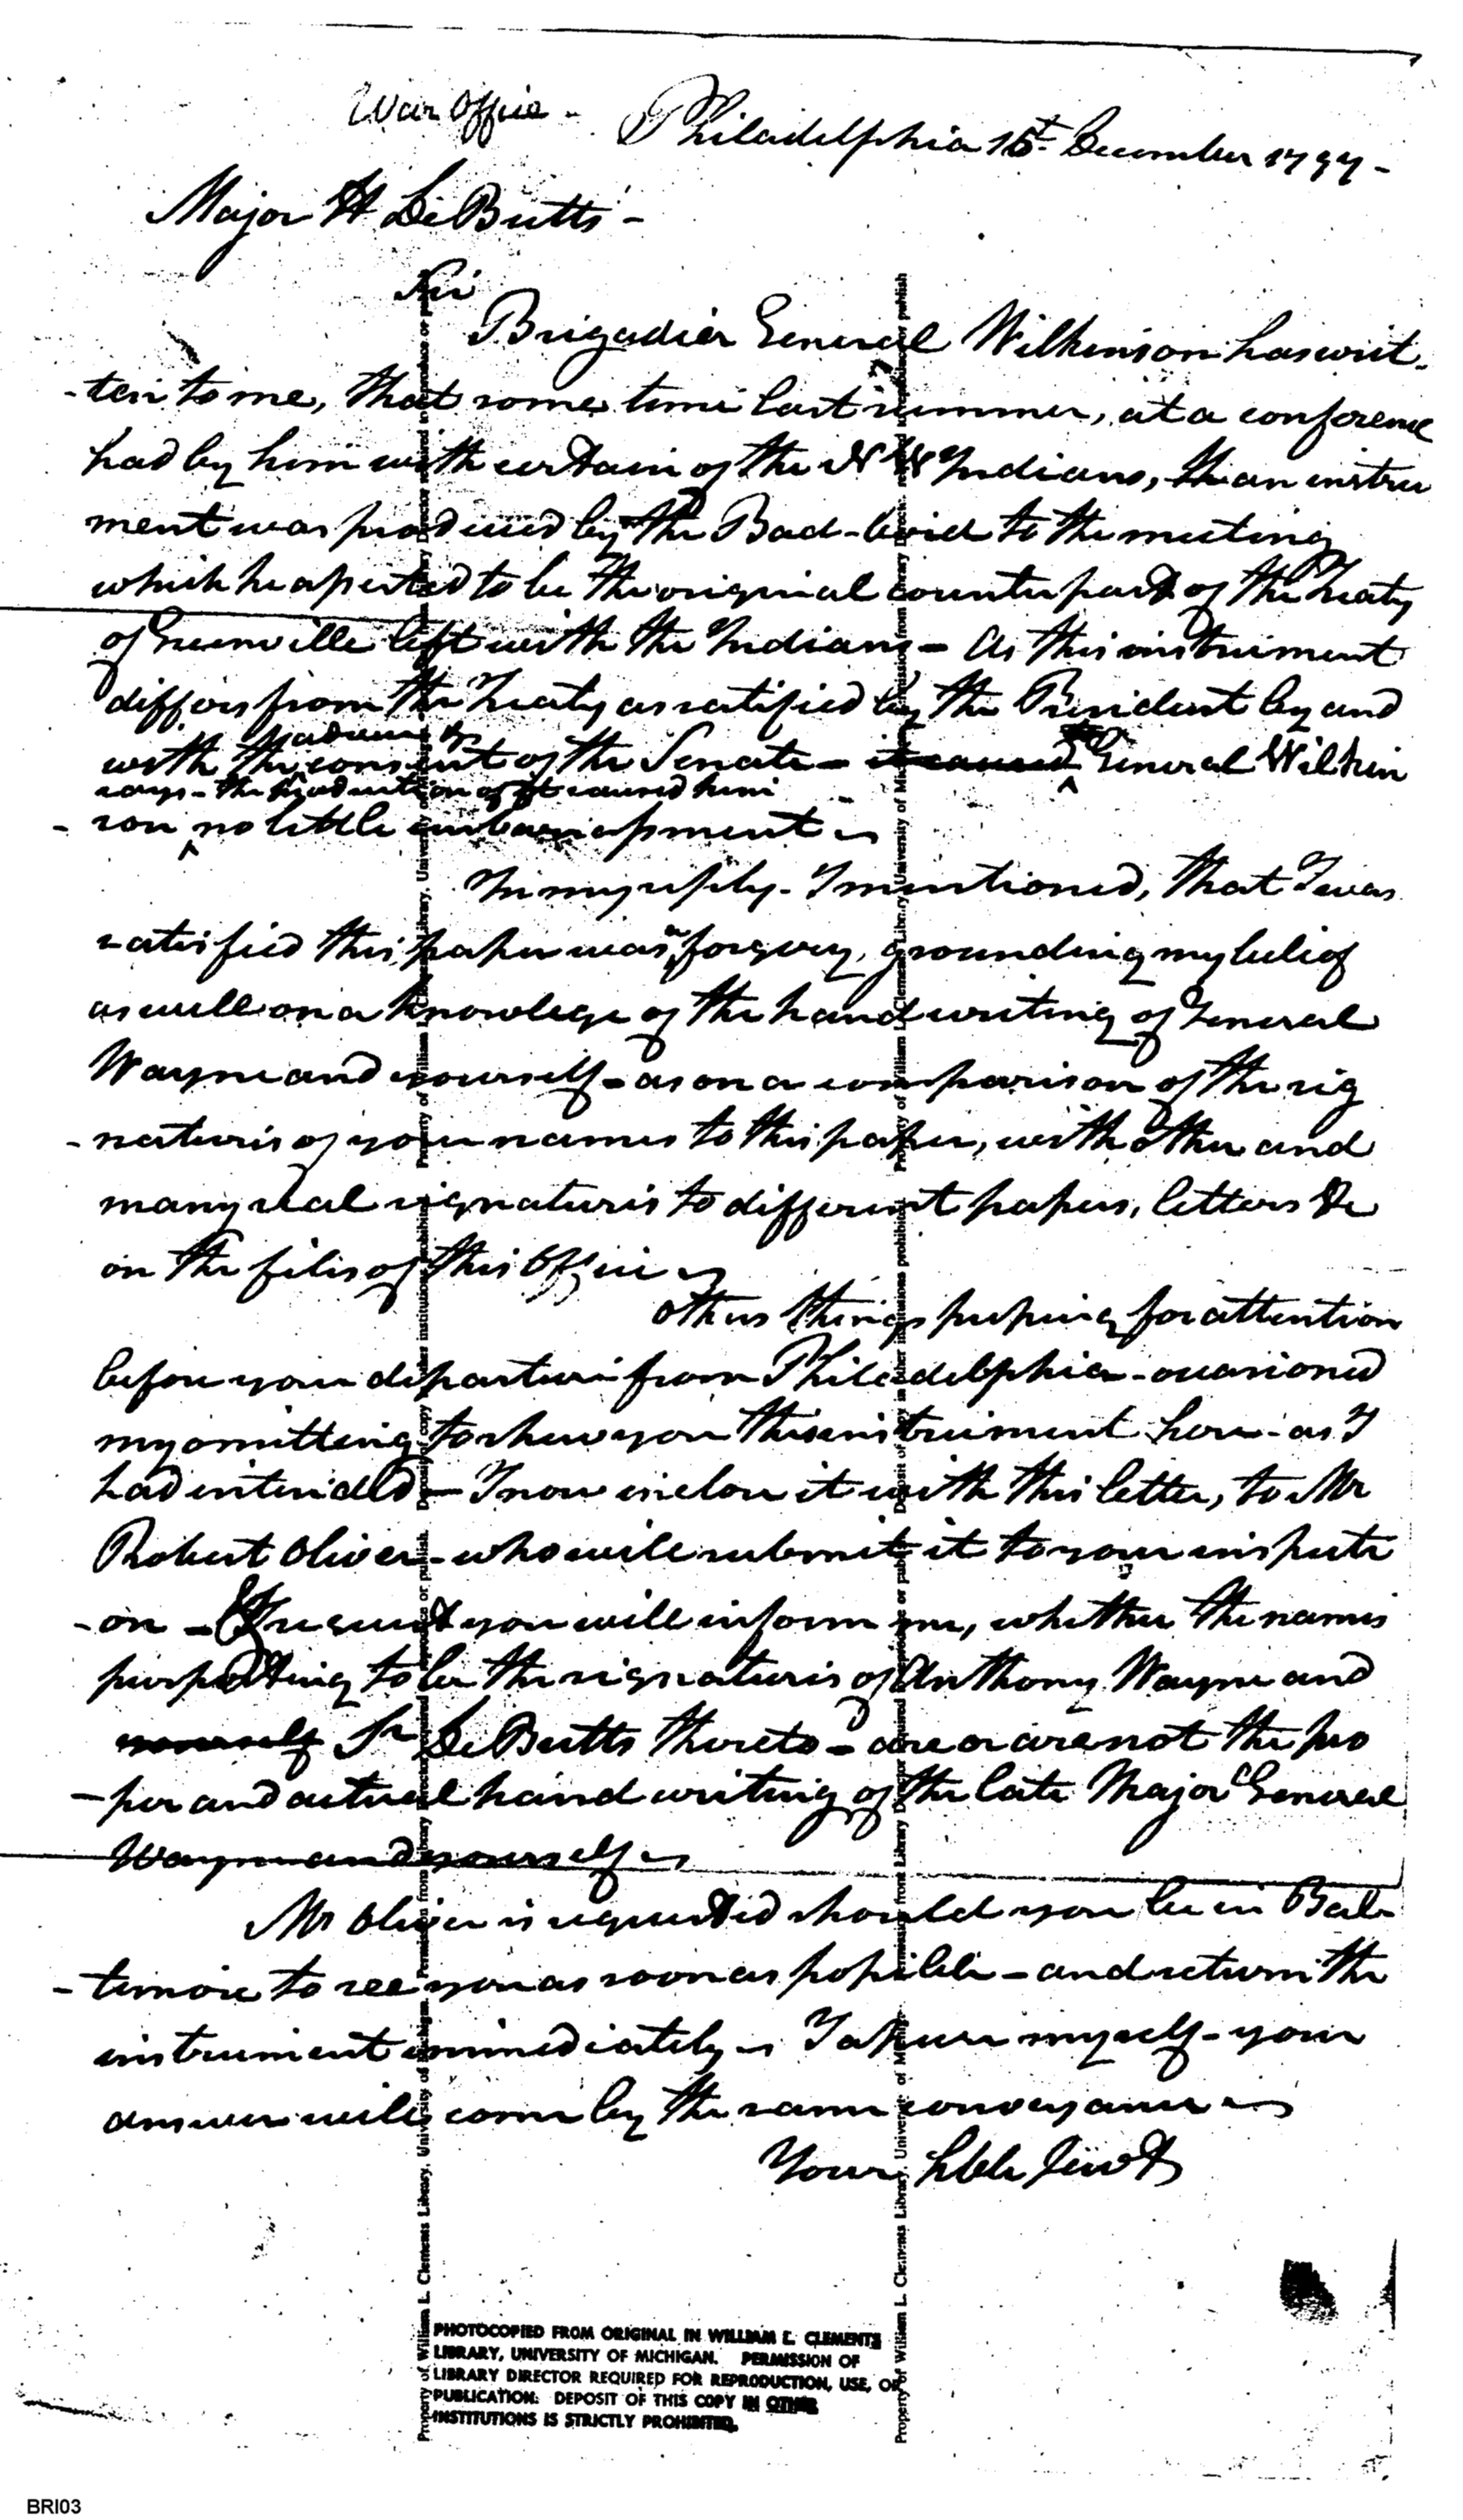 War Office - Philadelphia 15th December 1797 -
Major H DeButts -
Sir
Brigadier General Wilkinson has writ-
-ten to me, that some time last summer, at a conference
had by him with certain of the N W Indians, an instru
ment was produced by the Bad-bird to the meeting
which he asserted to be the original counterpart of the Treaty
of Greenville left with the Indians - As this instrument
differs from the Treaty as ratified by the President by and
with the advice & consent of the Senate - it caused General Wilkin
says - the production of it caused him
- son no little embarrassment
In my reply - I mentioned, that I was
satisfied this paper was a forgery, grounding my belief
as well on a knowlege of the hand writing of General
Wayne and yourself - as on a comparison of the sig
- natures of your names to this paper, with other and
many real signatures to different papers, letters &c
on the files of this Office
Others things pressing for attention
before your departure from Philadelphia - occasioned
my omitting to shew you this instrument here - as I
had intended - I now inclose it with this letter, to Mr
Robert Oliver - who will submit it to your inspecti
- on - I request you will inform me, whether the names
purporting to be the signatures of Anthony Wayne and
yourself DeButts thereto - are or are not the pro
- per and actual hand writing of the late Major General
Wayne and yourself
Mr Oliver is requested should you be in Bal-
- timore to see you as soon as possible - and return the
instrument immediately I assure myself - your
answer will come by the same conveyance
Your hble Servt
PHOTOCOPIED FROM ORIGINAL IN WILLIAM L. CLEMENTS
LIBRARY, UNIVERSITY OF MICHIGAN. PERMISSION OF
LIBRARY DIRECTOR REQUIRED FOR REPRODUCTION, USE, OR
PUBLICATION. DEPOSIT OF THIS COPY IN OTHER
INSTITUTIONS IS STRICTLY PROHIBITED.
BRI03